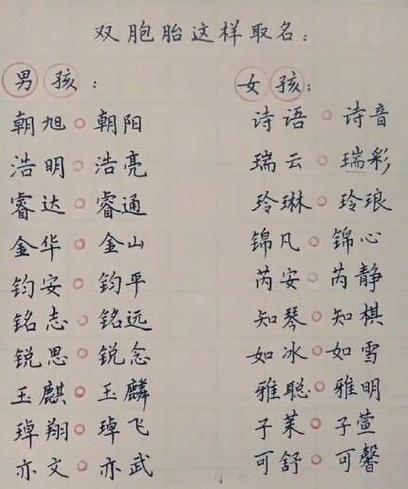 双胞胎这样取名：
男孩：
朝旭○朝阳
浩明○浩亮
睿达○睿通
金华○金山
钧安○钧平
铭志○铭远
锐思○锐念
玉麒○玉麟
琸翔○琸飞
亦文○亦武
女孩：
诗语○诗音
瑞云○瑞彩
玲琳○玲琅
锦凡○锦心
芮安○芮静
知琴○知棋
如冰○如雪
雅聪○雅明
子茉○子萱
可舒○可馨